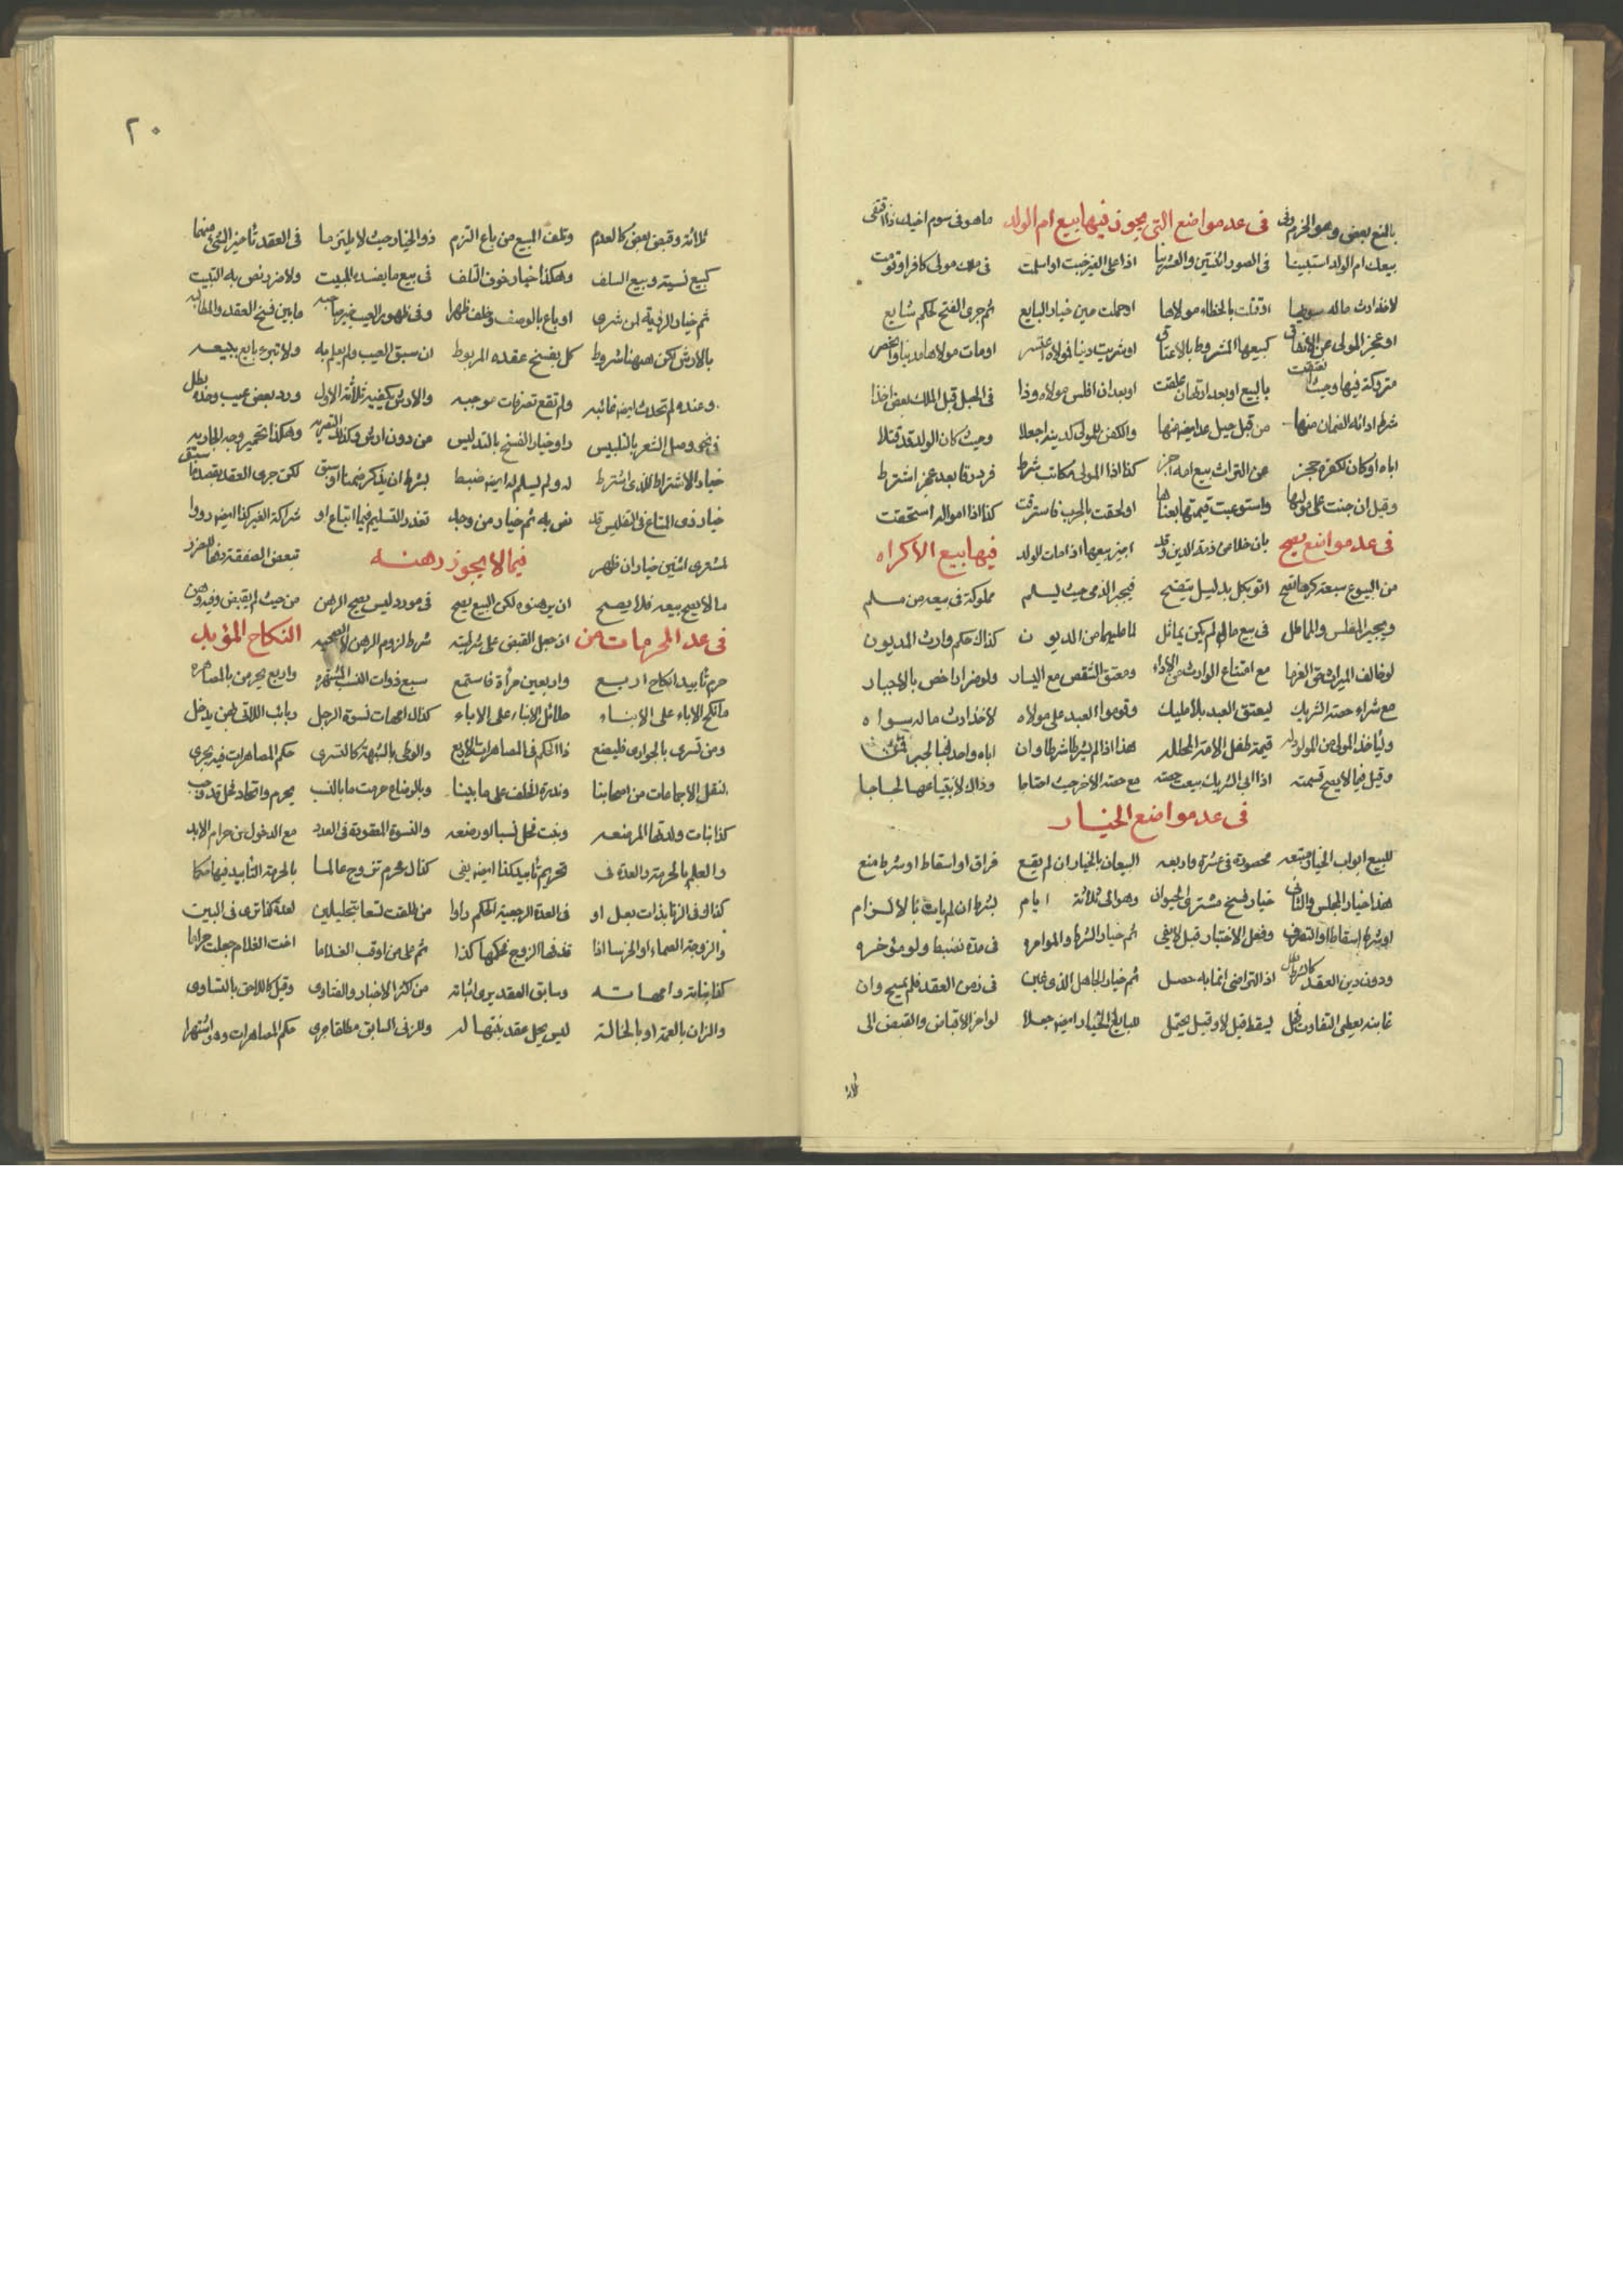 بالمنع بعض وهو الحزم وفى في عد مواضع التى يجوز فيها بيع ام الولد ماهو فى سوم اخيك ذا اقتفى
بيعك ام الولد استبينا فى الصور الثنتين والعشرينا اذا على الغير جنت او اسلمت فى ملك مولى كافر او
لاخذ ارث ماله او قتلت بالخطاء مولاها او حملت من خيار البايع ثم جرى الفسخ لحكم شايع
او عجز المولى عن الانفاق كبيعها المشروط بالاعتاق او شريت دينا فولاه اعتسر او مات مولاها مدينا
متروكة فيها وجبت بالبيع او بعد ارتهان علقت او بعد ان افلس مولاه وذا فى الحبل قبل الملك بعض اخذا
شرط ادائه الضمان منها من قبل حبل عد ايضا منها والكفن للمولى كدينه اجعلا وحيث كان الولد قد قتلا
اباه او كان لكفره حجز عن التراث بيع امه اجز كذا اذا المولى مكاتب شرط فرد رقا بعد عجز اشترط
وقيل ان جنت على مولاها واستوعبت قيمتها بعناها او لحقت بالحرب فاسترقت كذا اذا امواله استحقت
فى عد مواضع يصح بان خلاص ذمة الدين وقد اجيز بيعها اذا مات الولد فيها بيع الاكراه
من البيوع سبعة كرها تصح اتو بكل بدليل يتضح فيجبر الذمى حيث يسلم مملوكة فى بيعه من مسلم
ويجبر المفلس والماطل فى بيع مال لم يكن يماثل لما عليهما من الديون كذاك حكم وارث المديون
لو خالف الميراث حق الغرما مع امتناع الوارث من الاداء ومعتق الشقص مع اليسار ولو ضرارا خص بالاجبار
مع شراء حصة الشريك ليعتق العبد بلا مليك وقوموا العبد على مولاه لاخذ ارث ماله سواه
ولياخذ المولى من المولود له قيمة طفل الامة المحلله هذا اذا لم يشرطا شرطا وان اباه واحد فبالجبر قمن
وقيل فيما لا يصح قسمته اذا ابى الشريك بيعت حصته مع حصة الاخر حيث احتاجا وذاك لابتياعها لجاجا
فى عد مواضع الخيار
للبيع ابواب الخيار متبعه محصورة فى عشرة واربعه البيعان بالخيار ان لم يقع فراق او اسقاط او شرط منع
هذا خيار المجلس والثانى خيار فسخ مشترى الحيوان وهو الى ثلاثة ايام بشرط ان لم يات بالالزام
او شرط اسقاط او التصرف وفعل الاختيار قبل لا يفى ثم خيار الشرط والمؤامره فى مدة تضبط ولو مؤخره
ودون دين العقد كالشرط بطل اذ التراضى انما به حصل ثم خيار الجاهل الذى غبن فى زمن العقد فلم يبح وان
غابنه يعطى التفاوت فهل يسقط قيل لا وقيل يحتمل للبايع الخيار ايضا جعلا لو اخر الاقباض والقبض الى
ثلاثة
٢٠
ثلاثة وقبض بعض كالعدم وتلف المبيع من باع التزم ذو الخيار حيث لا يلتزما فى العقد تاخير الشئ منهما
كبيع نسية وبيع السلف وهكذا خيار خوف التلف فى بيع ما يفسده المبيت ولا ضرر نص به التبيت
ثم خيار الرؤية لمن شرى او باع بالوصف وخلف ظهرا وفى ظهور العيب خير صاحبه ما بين فسخ العقد والمطالبه
بالارش لكن ههنا شروط كل بفسخ عقده المربوط ان سبق العيب ولم يعلم به ولا تبرء بايع ببيعه
وعنده لم تحدث ايضا غائبه ولم تقع تصرفات موجبه والارش يكفيه ثلاثة الاول ورد بعض عيب وحده بطل
فى نحو وصل الشعر بالتلبيس راو خيار الفسخ بالتدليس من دون ارش وكذا التصريه وهكذا تحمير وجه الجاريه
خيار الاشتراط للذى اشترط له ولم يسلم له ايضا ضبط بشرط ان يذكر ضمنا او سبق لكن جرى العقد بقصد ما سبق
خيار ذى المتاع فى التفليس قد نص به ثم خيار من وجد تعذر التسليم فيما ابتاع او شراكة الغير كذا ايضا رووا
لمشترى اثنين خيار ان ظهر فيما لا يجوز رهنه تبعض الصفقة
ما لا يصح بيعه فلا يصح ان يرهنوه لكن البيع يصح فى مورد ليس يصح الرهن من حيث لم يقبض وفيه وهن
فى عد المحرمات من اذ جعل القبض على شرطيته شرط لزوم الرهن لا لصحته النكاح المؤبد
حرم تابيدا نكاح اربع واربعين مراة فاستمع سبع ذوات النسب المشتهره واربع يحرمن بالمصاهره
ما نكح الاباء على الابناء حلائل الابناء على الاباء كذاك امهات نسوة الرجل ربائب اللاتى بهن يدخل
ومن تسرى بالجوارى فليضع ذا الحكم فى المصاهرات الاربع والوطى بالشبهة كالتسرى حكم المصاهرات فيه يجرى
لنقل الاجماعات من اصحابنا وندرة الخلف على ما بينا وبالرضاع حرمت ما بالنسب يحرم واتحاد فحل قد وجب
كذا بنات ولدتها المرضعه وبنت فحل نسبا او رضعه والنسوة المعقودة فى العدد مع الدخول من حرام الابد
والعلم بالحرمة والعدة ف تحريم تابيد كذا ايضا يفى كذاك محرم تزوج عالما بالحرمة التابيد فيها حكما
كذاك فى الزنا بذات بعل او فى العدة الرجعية الحكم راوا من طلقت تسعا بتحليلين لعدة كما ترى فى البين
والزوجة الصماء او الخرسا اذا قذفها الزوج فحكمها كذا ثم على من اوقب الغلاما اخت الغلام جعلت حراما
كذا بناته وامهاته وسابق العقد يرى اثباته من كثر الاخبار والفتاوى وقيل كاللاحق بالتساوى
والزان بالعمة او بالخالة ليس يحل عقد بنتها له وللزنى السابق مطلقا جرى حكم المصاهرات